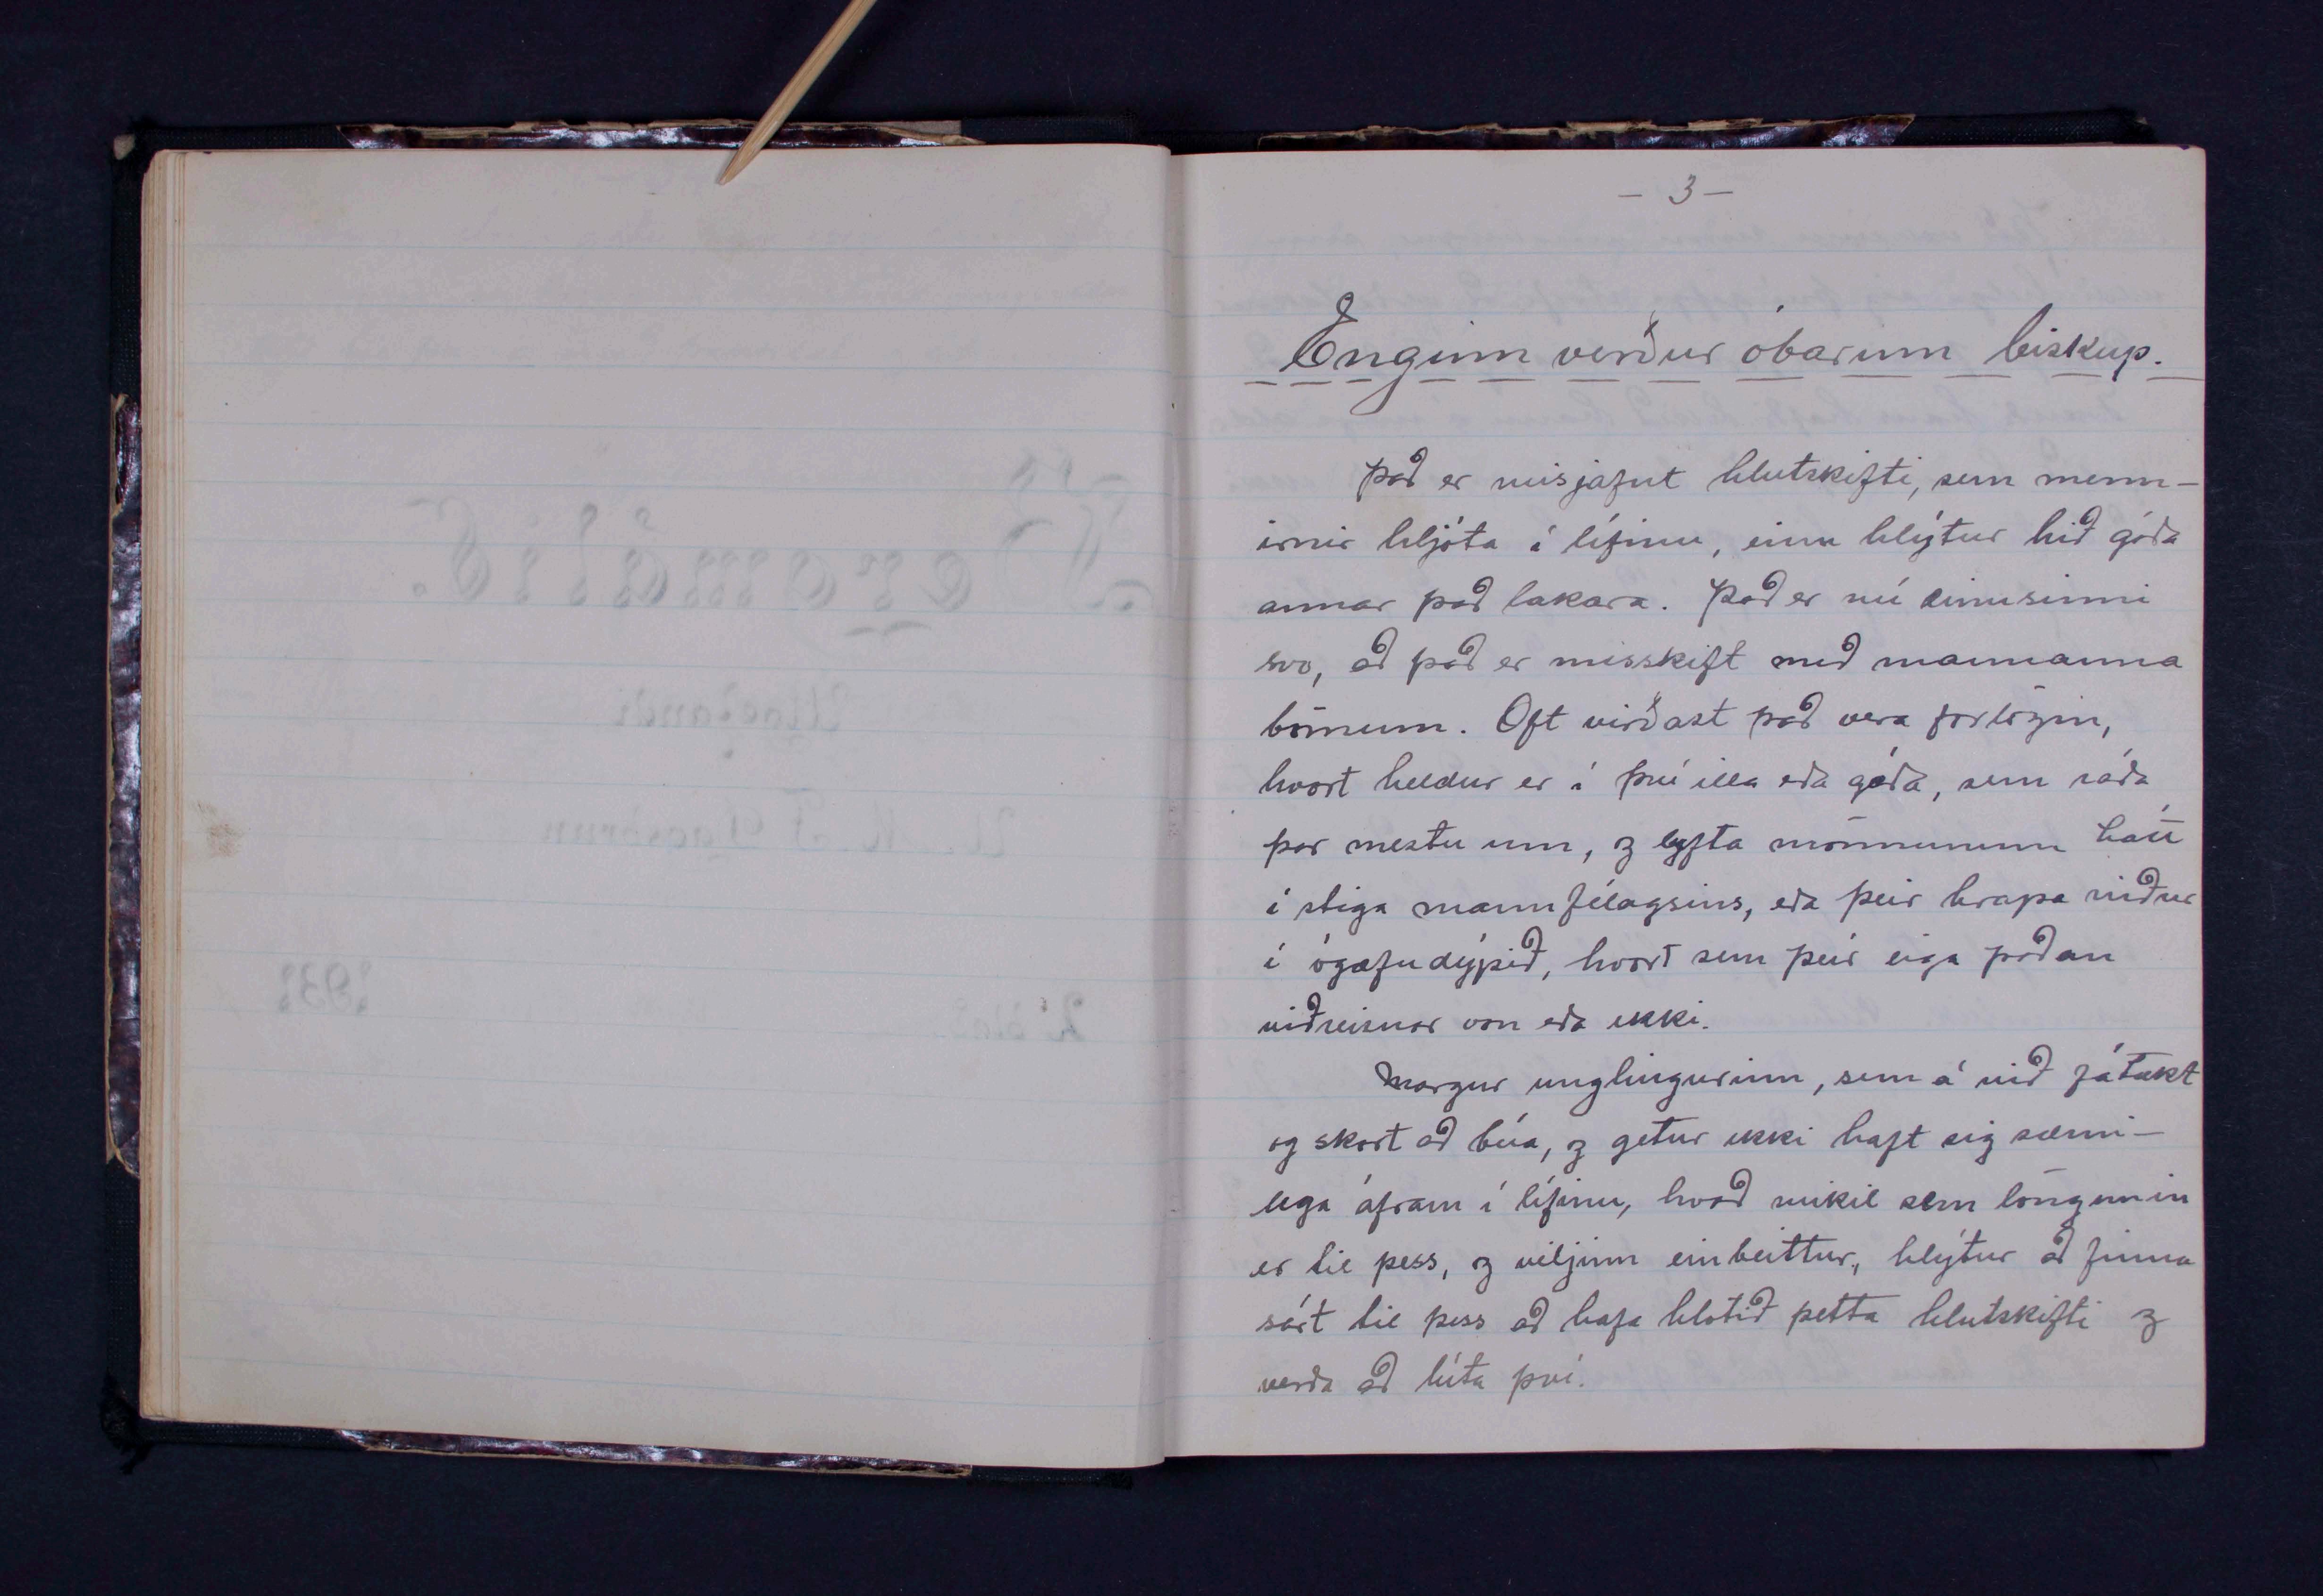 - 3 -
Enginn verður óbarinn biskup.
Það er misjafnt hlutskifti, sem menn-
irnir hljóta í lífinu, einn hlýtur hið góða
annar það lakara. Það er nú einusinni
svo, að það er misskift með mannanna
börnum. Oft virðast það vera forlögin,
hvort heldur er í því illa eða góða, sem ráða
þar mestu um, og lyfta mönnunum hátt
í stiga mannfélagsins, eða þeir hrapa niður
í ógæfudýpið, hvort sem þeir eiga þaðan
viðreisnar von eða ekki.
Margur unglingurinn, sem á við fátækt
og skort að búa, og getur ekki haft sig sæmi-
lega áfram í lífinu, hvað mikil sem löngunin
er til þess, og viljinn einbeittur, hlýtur að finna
sárt til þess að hafa hlotið þetta hlutskifti og
verða að lúta því.